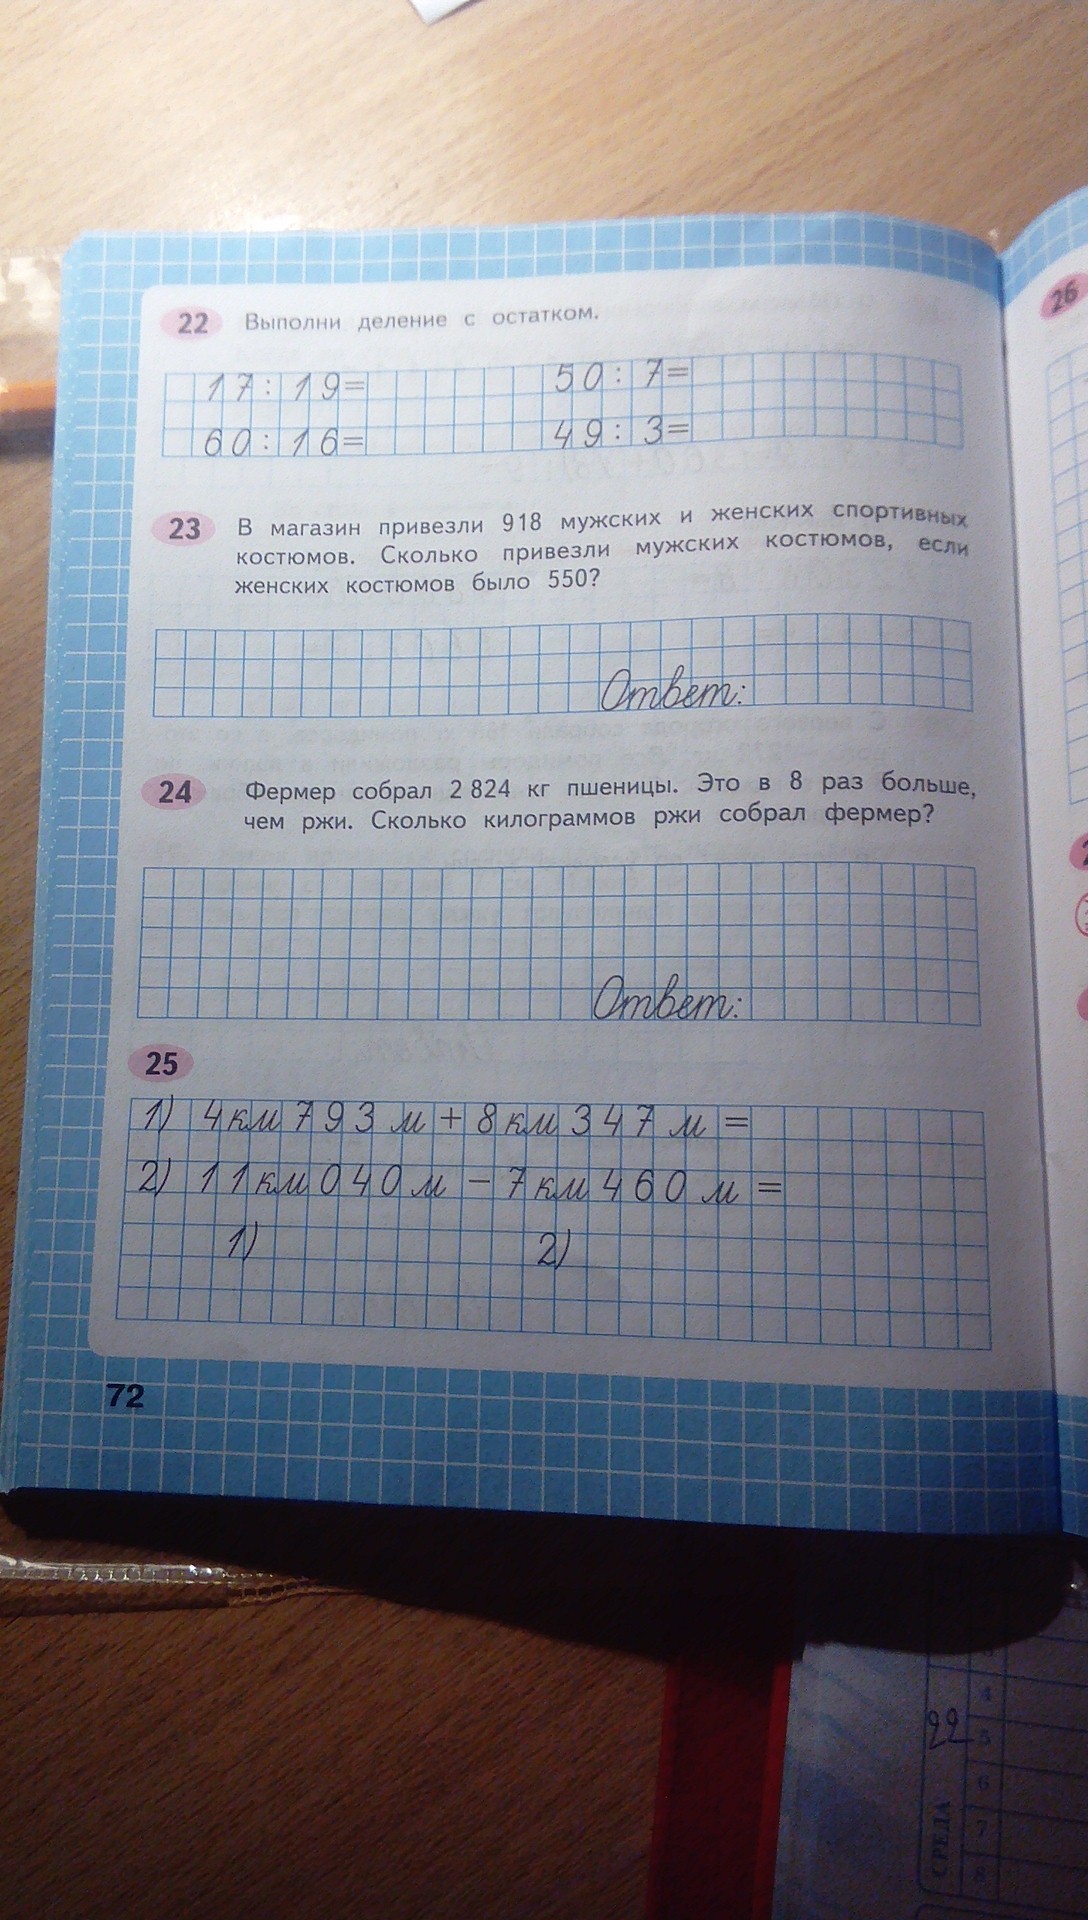 22 Выполни деление с остатком.
17:19= 50:7=
60:16= 49:3=
23 В магазин привезли 918 мужских и женских спортивных
костюмов. Сколько привезли мужских костюмов, если
женских костюмов было 550?
Ответ:
24 Фермер собрал 2 824 кг пшеницы. Это в 8 раз больше,
чем ржи. Сколько килограммов ржи собрал фермер?
Ответ:
25
1) 4 км 793 м + 8 км 347 м =
2) 11 км 040 м - 7 км 460 м =
1) 2)
72
26
22
СРЕДА
4
5
6
7
8